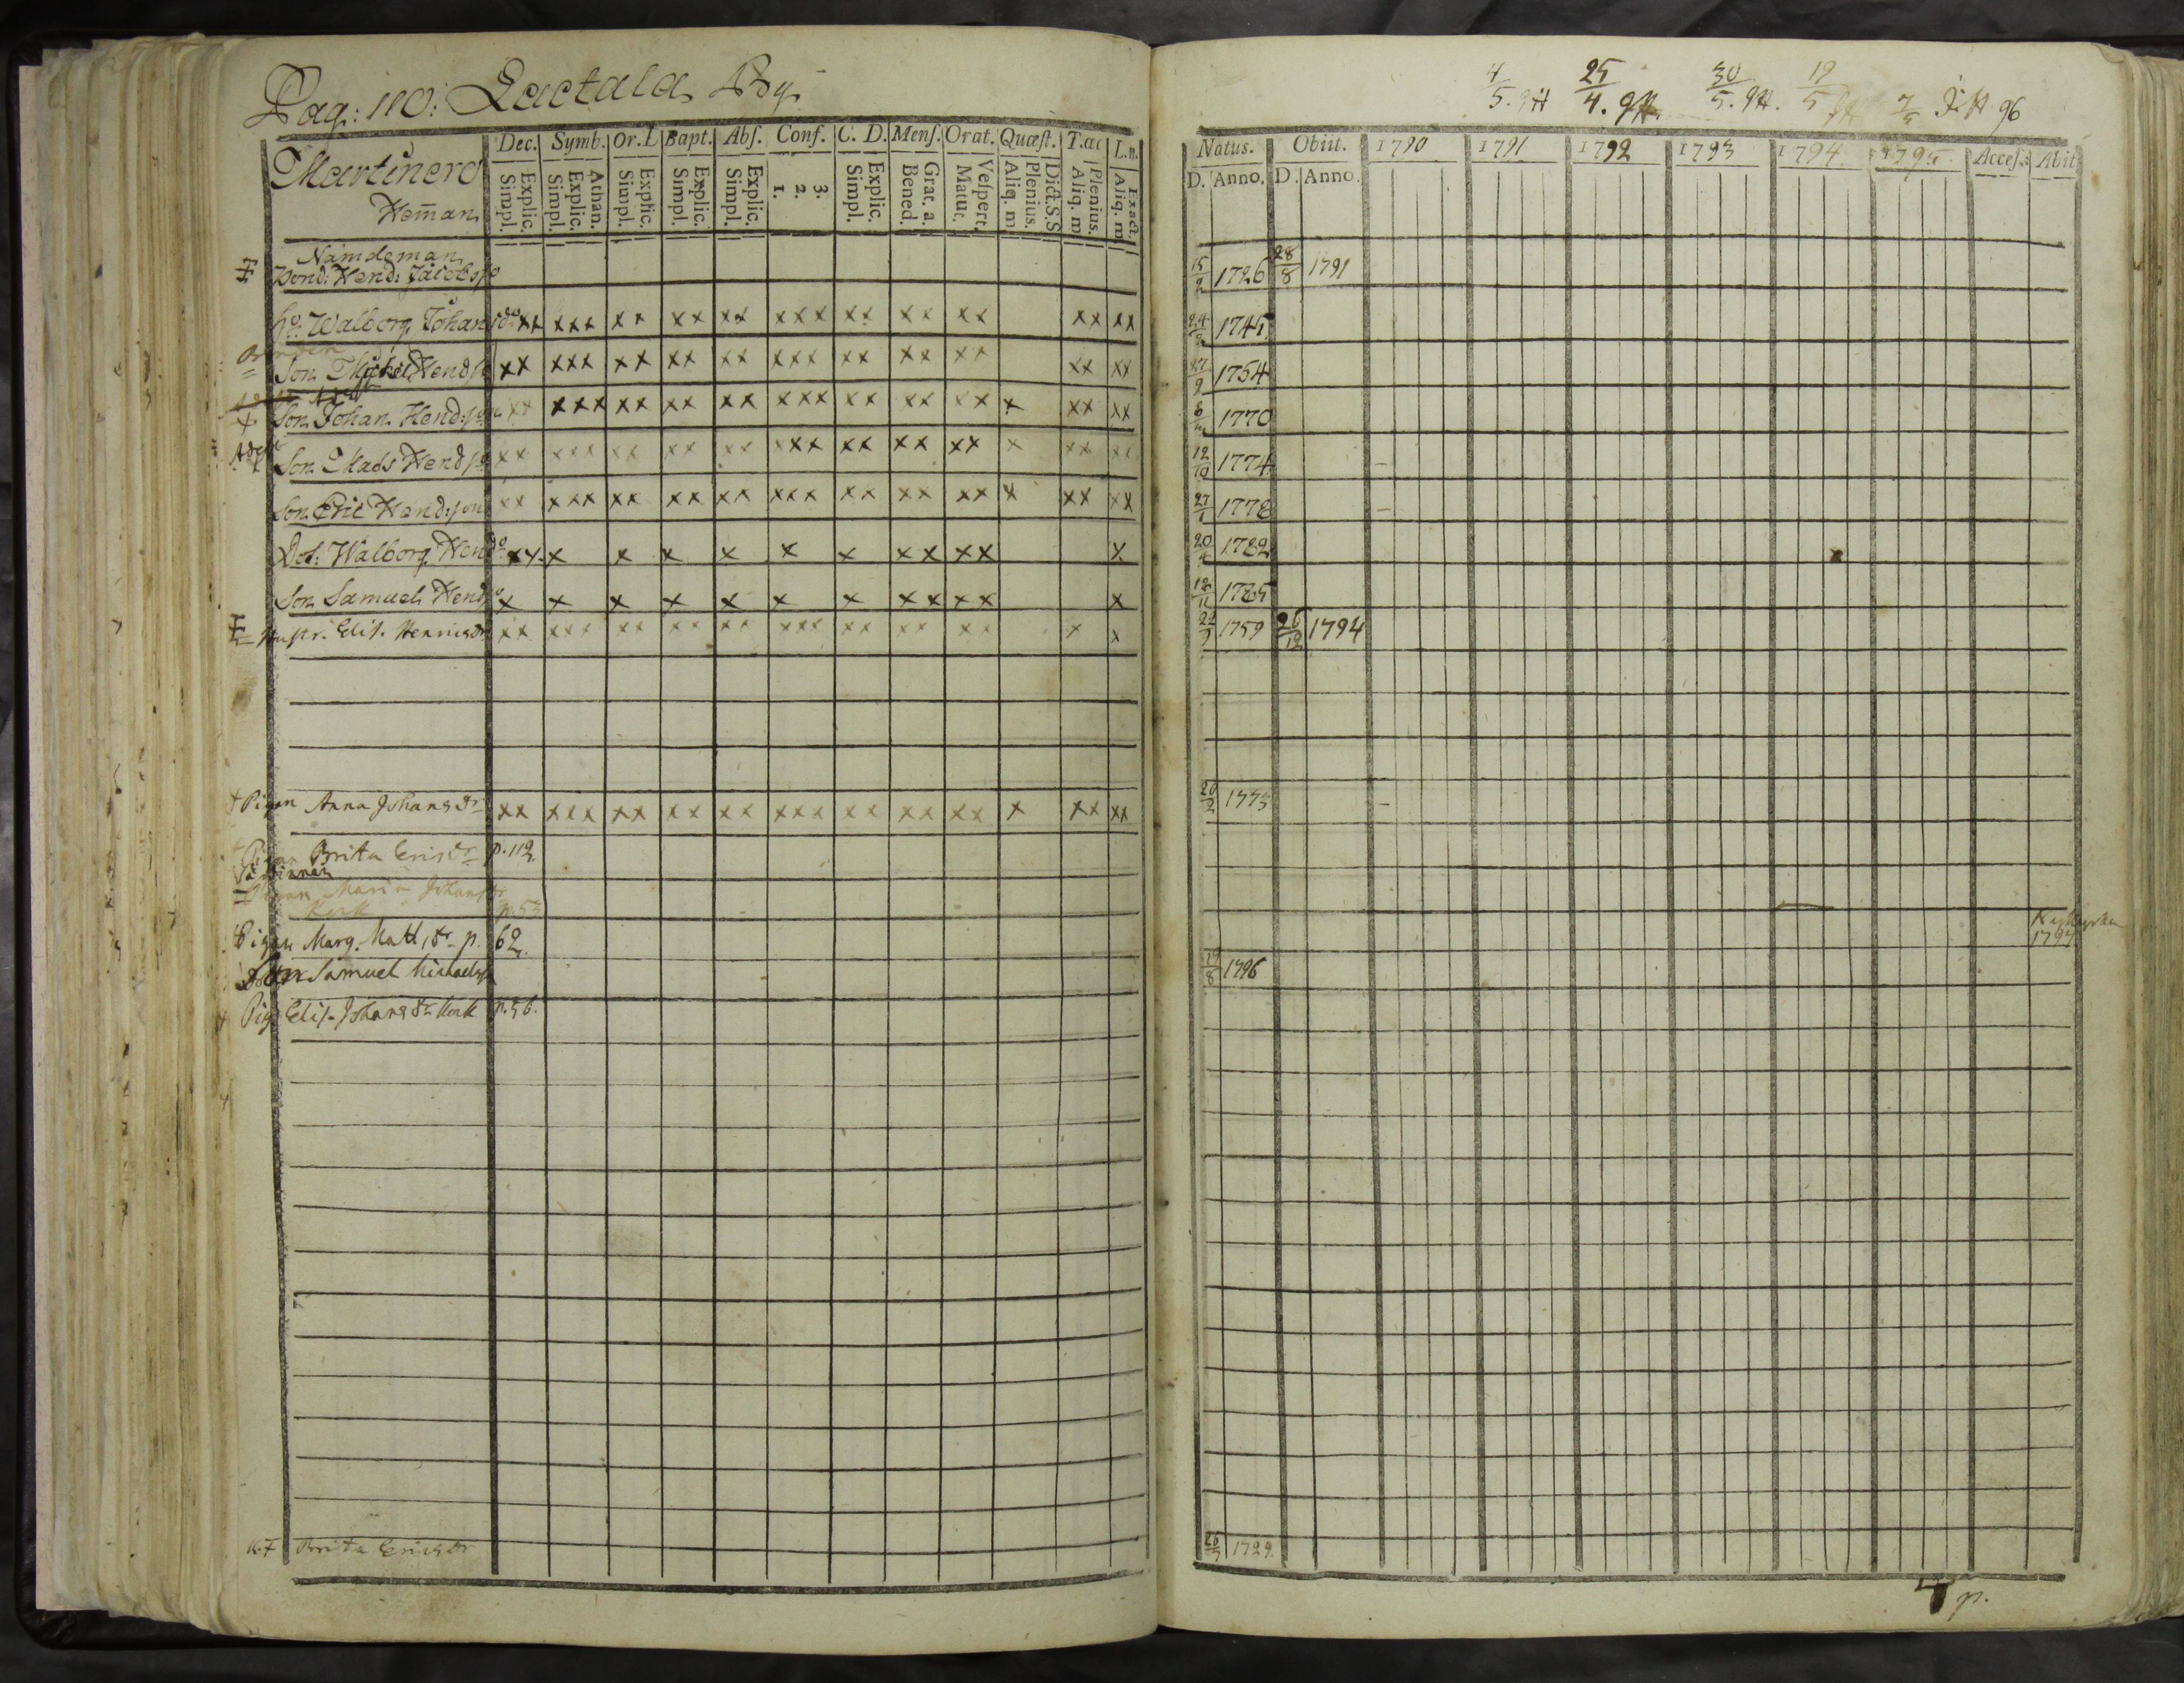 Pag: 110: Lactala By
Martinero
Hem̄an
Dec. Symb. Or.L Bapt. Abſ. Conf. C. D. Menſ. Orat. Quæſt. T.æc L.n.
Explic. Simpl. Athan. Explic. Simpl. Explic. Simpl. Explic. Simpl. Explic. Simpl. 3. 2. 1. Explic. Simpl. Grat. a. Bened. Veſpert. Matut. Dict.S.S Plenius. Aliq. m Plenius. Aliq. m Exact. Aliq. m
Nämdeman
Bond: Hend: Jacobsso
ho: Walborg Johansdo xx xxx xx xx xx xxx xx xx xx xx xx
Son Mickel Hendss xx xxx xx xx xx xxx xx xx xx xx xx
Son Johan Hend:son xx xxx xx xx xx xxx xx xx xx x xx xx
Son Mads Hendss xx xxx xx xx xx xxx xx xx xx x xx xx
Son Eric Hend:son xx xxx xx xx xx xxx xx xx xx x xx xx
Dot: Walborg Hendo xx x x x x x x xx xx x
Son Samuel Hends x x x x x x x xx xx x
Hustr. Elis. Henricsdr xx xxx xx xx xx xxx xx xx xx x x
Pigan Anna Johansdr xx xxx xx xx xx xxx xx xx xx x xx xx
Pigan Brita Ericsdr p. 112.
Pigan Maria Johansdr
Kork p. 53
Pigan Marg. Matt,dr p. 62.
Son Samuel Michaelss
Pig. Elis. Johansdr Kork p. 56.
K. F Brita Ericsdr
4/5. 9H 25/4. 9H. 30/5. 9H. 19/5 7/5 96
Natus. Obiit. 1790 1791 1792 1793 1794 1795 Acceſ. Abit
D. Anno. D. Anno.
15/2 1726 28/8 1791
24/2 1745
27/9 1754
8/ 1770
12/10 1774
27/1 1778
20/4 1782
12/11 1785
22/9 1759 26/12 1794
20/2 1773
Kyrkan
1797
19/8 1796
26/5 1729.
p.